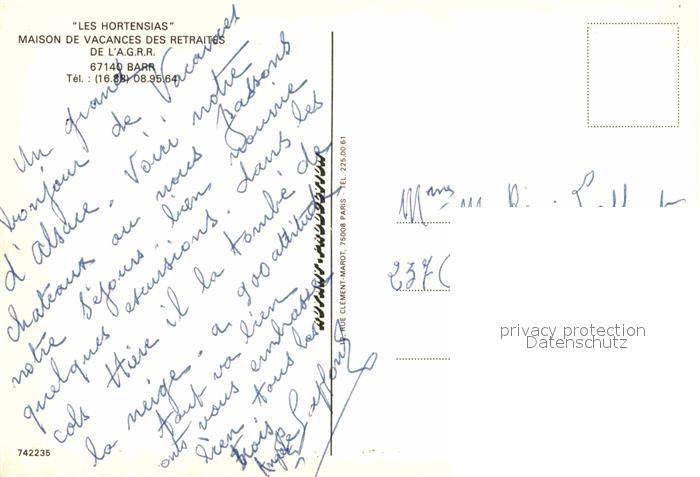 "LES HORTENSIAS"
MAISON DE VACANCES DES RETRAITÉS
DE L'A.G.R.R.
67140 BARR
Tél. : (16.88) 08.95.64
Un grand
bonjour de Vacances
d'alsace. Voici notre
chateaux ou nous passons
notre séjours. bien nourrie
quelques excursions. dans les
cols Hière il la tombé de
la neige. a 900 attitude
tout va bien
vous embrasse
bien tous les
trois
RUE CLÉMENT-MAROT, 75008 PARIS - TÉL. 225.00.61
742235
237
privacy protection
Datenschutz